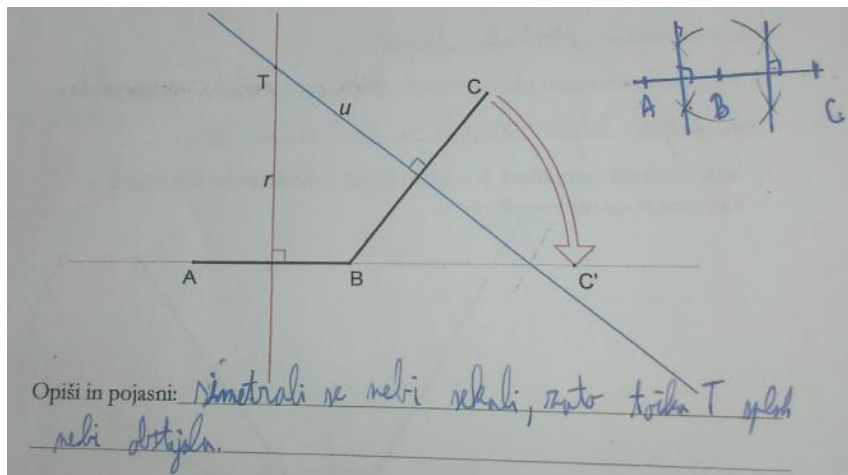 T
C
u
r
A
B
C'
A
B
C
Opiši in pojasni: simetrali se nebi sekali, zato točka T sploh
nebi obstojala.